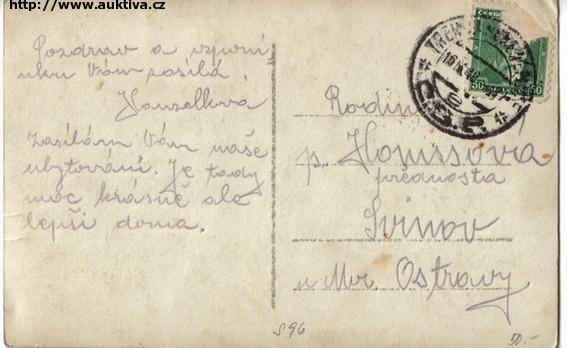 http://www.auktiva.cz
Pozdrav a vzpomí
nku Vám posílá
Hanzelková
Zasílám Vám naše
ubytování. Je tady
moc krásně ale
lepší doma.
Rodina
p. Honissová
přednosta
Svinov
u Mor. Ostravy
ČESKO
50 50
Č.S.P.
S 96
50.-